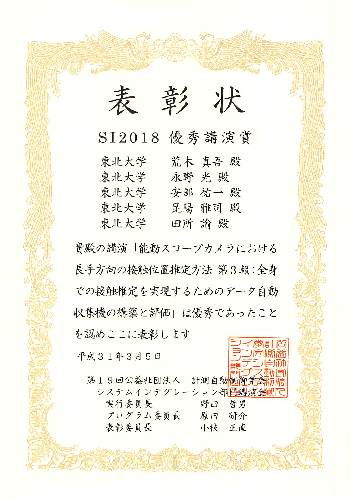 表彰状
SI2018 優秀講演賞
東北大学 荒木 真吾 殿
東北大学 永野 光 殿
東北大学 安部 祐一 殿
東北大学 昆陽 雅司 殿
東北大学 田所 諭 殿
貴殿の講演「能動スコープカメラにおける
長手方向の接触位置推定方法 第3報:全身
での接触推定を実現するためのデータ自動
収集機の構築と評価」は優秀であったこと
を認めここに表彰します
平成31年3月5日
第19回公益社団法人 計測自動制御学会
システムインテグレーション部門講演会
実行委員長 野口
プログラム委員長 原田 研介
表彰委員長 小枝 正直